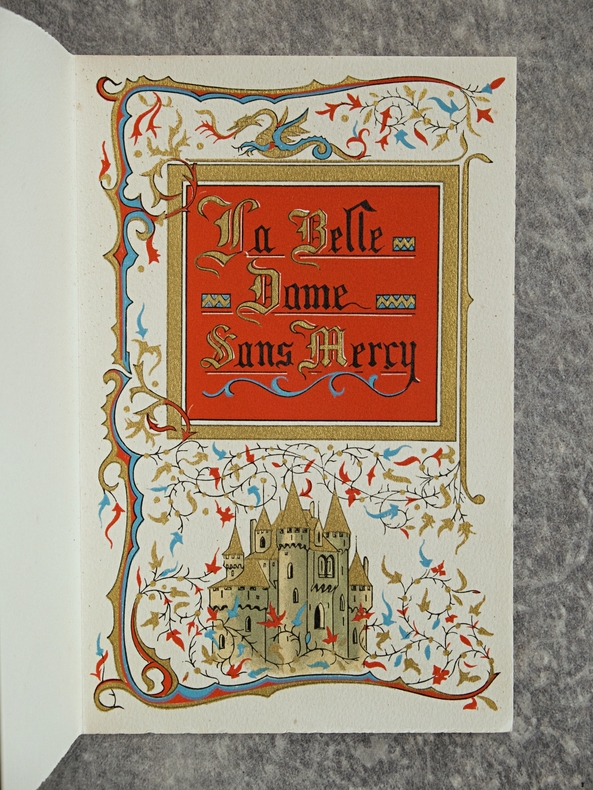 La Belle
Dame
Sans Mercy